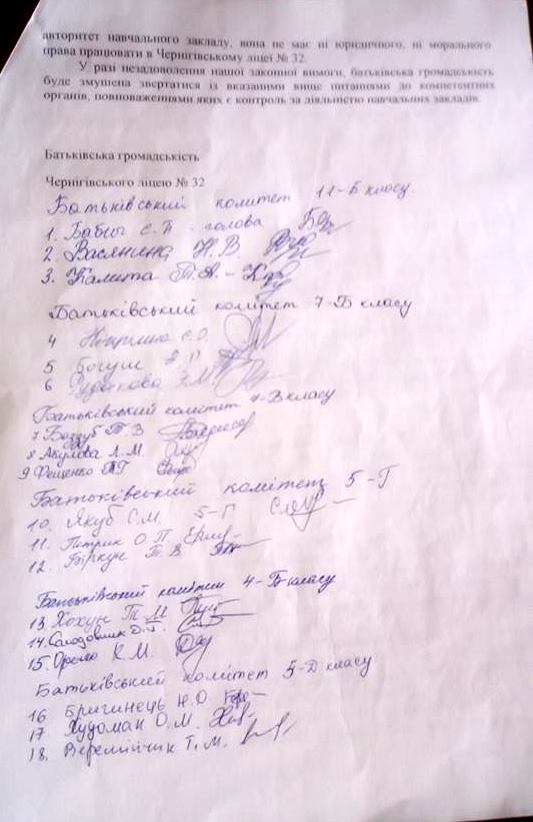 авторитет навчального закладу, вона не має ні юридичного, ні морального
права працювати в Чернігівському ліцеї № 32.
У разі незадоволення нашої законної вимоги, батьківська громадськість
буде змушена звертатися із вказаними вище питаннями до компетентних
органів, повноваженнями яких є контроль за діяльністю навчальних закладів.
Батьківська громадськість
Чернігівського ліцею № 32
Батьківський комітет 11-Б класу.
1. Бабич Є.П - голова
2. Васянина Н.В
3. Калита Т.А. -
Батьківський комітет 7-Б класу
4 Є.О.
5 Богуш
6
Батьківський комітет -В класу
7 Т. В
8 Акулова Л.М.
9 Фещенко
Батьківський комітет 5-Г
10. Якуб С.М. 5-Г
11. Петрик О.П.
12. Біркун Т. В
Батьківський комітет 4-Б класу
13 Хохуц Т.М
14. Солодовник
15. К.М.
Батьківський комітет 5-Д класу
16 Бригинець Н.О
17 Худоман О.М.
18. Веремійчик Т.М.